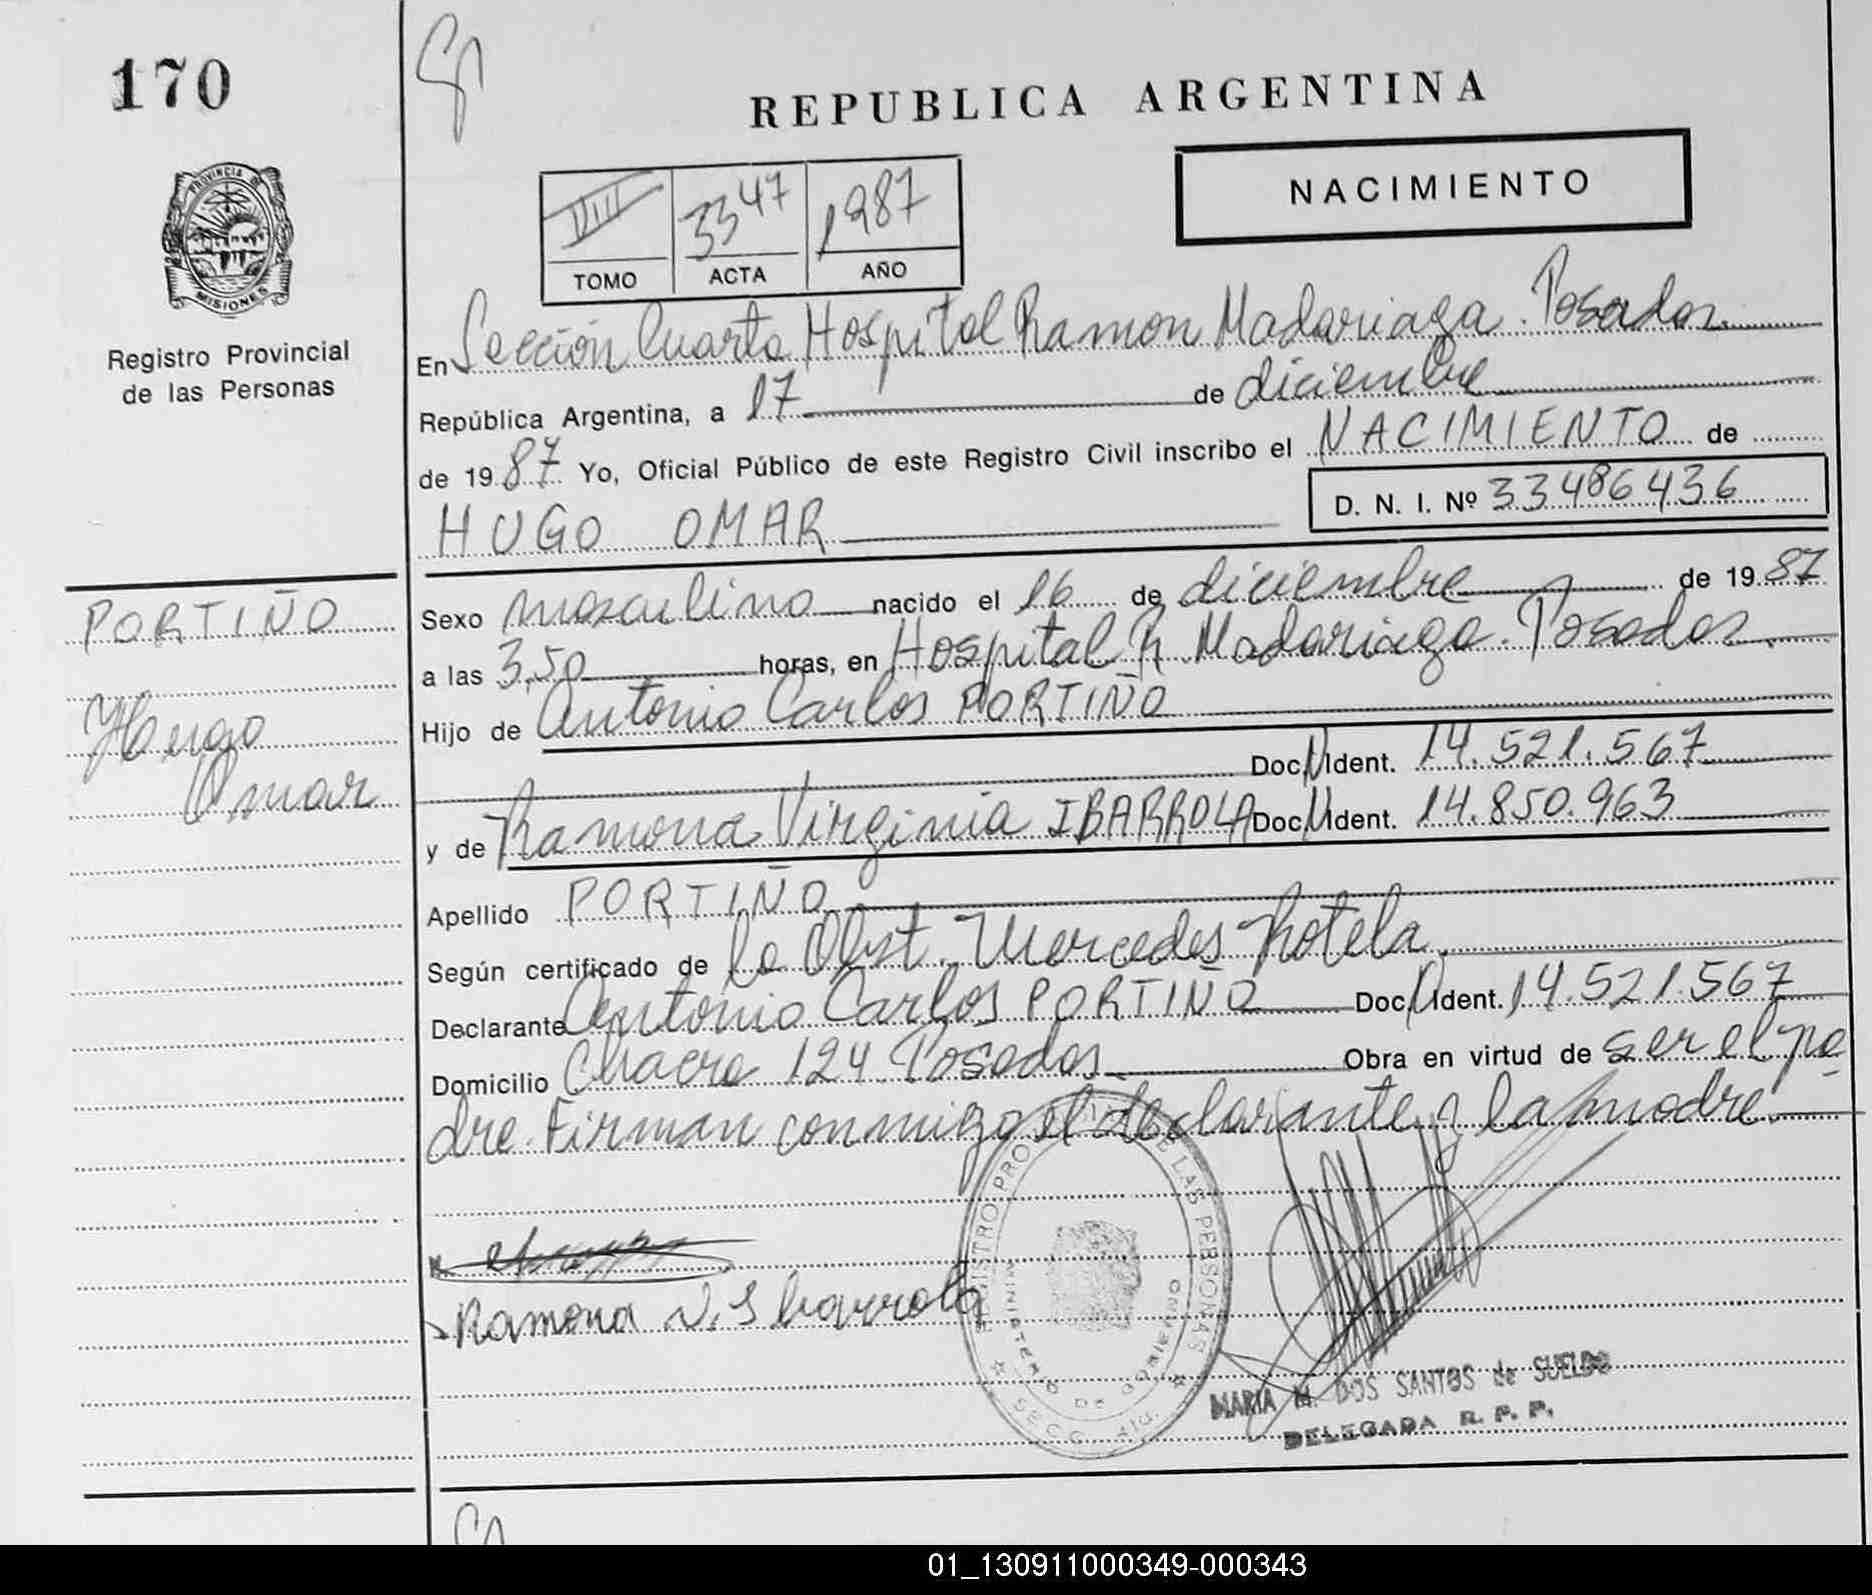 170
REPUBLICA ARGENTINA
NACIMIENTO
VIII 3347 1987
TOMO ACTA AÑO
PROVINCIA DE
MISIONES
Registro Provincial
de las Personas
En Sección Cuarta Hospital Ramon Madariaga. Posadas
República Argentina, a 17 de diciembre
de 1987 Yo, Oficial Público de este Registro Civil inscribo el NACIMIENTO de
D. N. I. Nº 33486436
HUGO OMAR
PORTIÑO
Hugo
Omar
Sexo masculino nacido el 16 de diciembre de 1987
a las 3,50 horas, en Hospital R. Madariaga. Posadas.
Hijo de Antonio Carlos PORTIÑO
Doc. N Ident. 14.521.567
y de Ramona Virginia IBARROLA Doc. N Ident. 14.850.963
Apellido PORTIÑO
Según certificado de la Obst. Mercedes Rotela
Declarante Antonio Carlos PORTIÑO Doc. N Ident. 14.521.567
Domicilio Chacra 124. Posadas Obra en virtud de ser el pa
dre. Firman conmigo el declarante y la madre.
Ramona V. Ibarrola
REGISTRO PROVINCIAL DE LAS PERSONAS
MINISTERIO DE GOBIERNO
MARIA M. DOS SANTOS de SUELDO
DELEGADA R. P. P.
01_130911000349-000343